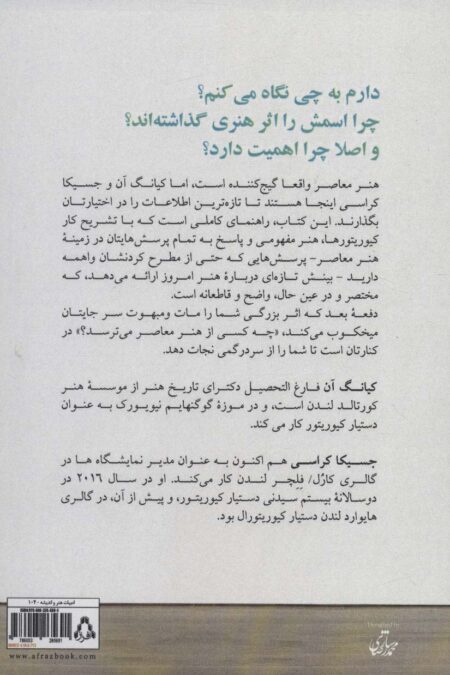 دارم به چی نگاه می‌کنم؟
چرا اسمش را اثر هنری گذاشته‌اند؟
و اصلا چرا اهمیت دارد؟
هنر معاصر واقعا گیج‌کننده است، اما کیانگ آن و جسیکا
کراسی اینجا هستند تا تازه‌ترین اطلاعات را در اختیارتان
بگذارند. این کتاب، راهنمای کاملی است که با تشریح کار
کیوریتورها، هنر مفهومی و پاسخ به تمام پرسش‌هایتان در زمینهٔ
هنر معاصر- پرسش‌هایی که حتی از مطرح کردنشان واهمه
دارید - بینش تازه‌ای دربارهٔ هنر امروز ارائه می‌دهد، که
مختصر و در عین حال، واضح و قاطعانه است.
دفعهٔ بعد که اثر بزرگی شما را مات ومبهوت سر جایتان
میخکوب می‌کند، «چه کسی از هنر معاصر می‌ترسد؟» در
کنارتان است تا شما را از سردرگمی نجات دهد.
کیانگ آن فارغ التحصیل دکترای تاریخ هنر از موسسهٔ هنر
کورتالد لندن است، و در موزهٔ گوگنهایم نیویورک به عنوان
دستیار کیوریتور کار می کند.
جسیکا کراسی هم اکنون به عنوان مدیر نمایشگاه ها در
گالری کارل/ فلچر لندن کار می‌کند. او در سال ۲۰۱۶ در
دوسالانهٔ بیستم سیدنی دستیار کیوریتور، و پیش از آن، در گالری
هایوارد لندن دستیار کیوریتورال بود.
ادبیات هنر و اندیشه - ۱۰۴۰
www.afrazbook.com
Designed by